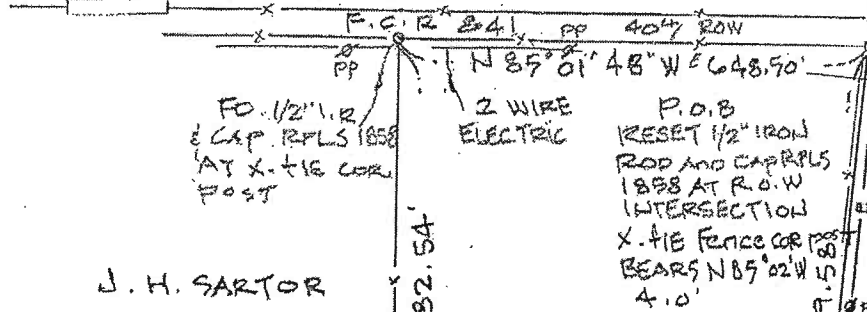 F.C.R 841 PP 40' ROW
PP
N 85° 01' 48" W 648.50'
FD. 1/2" I.R.
& CAP RPLS 1858
AT X-TIE COR
POST
2 WIRE
ELECTRIC
P.O.B
RESET 1/2" IRON
ROD AND CAP RPLS
1858 AT R.O.W
INTERSECTION
X-TIE FENCE COR POST
BEARS N85°02'W
4.0'
J. H. SARTOR
82.54'
9.58'